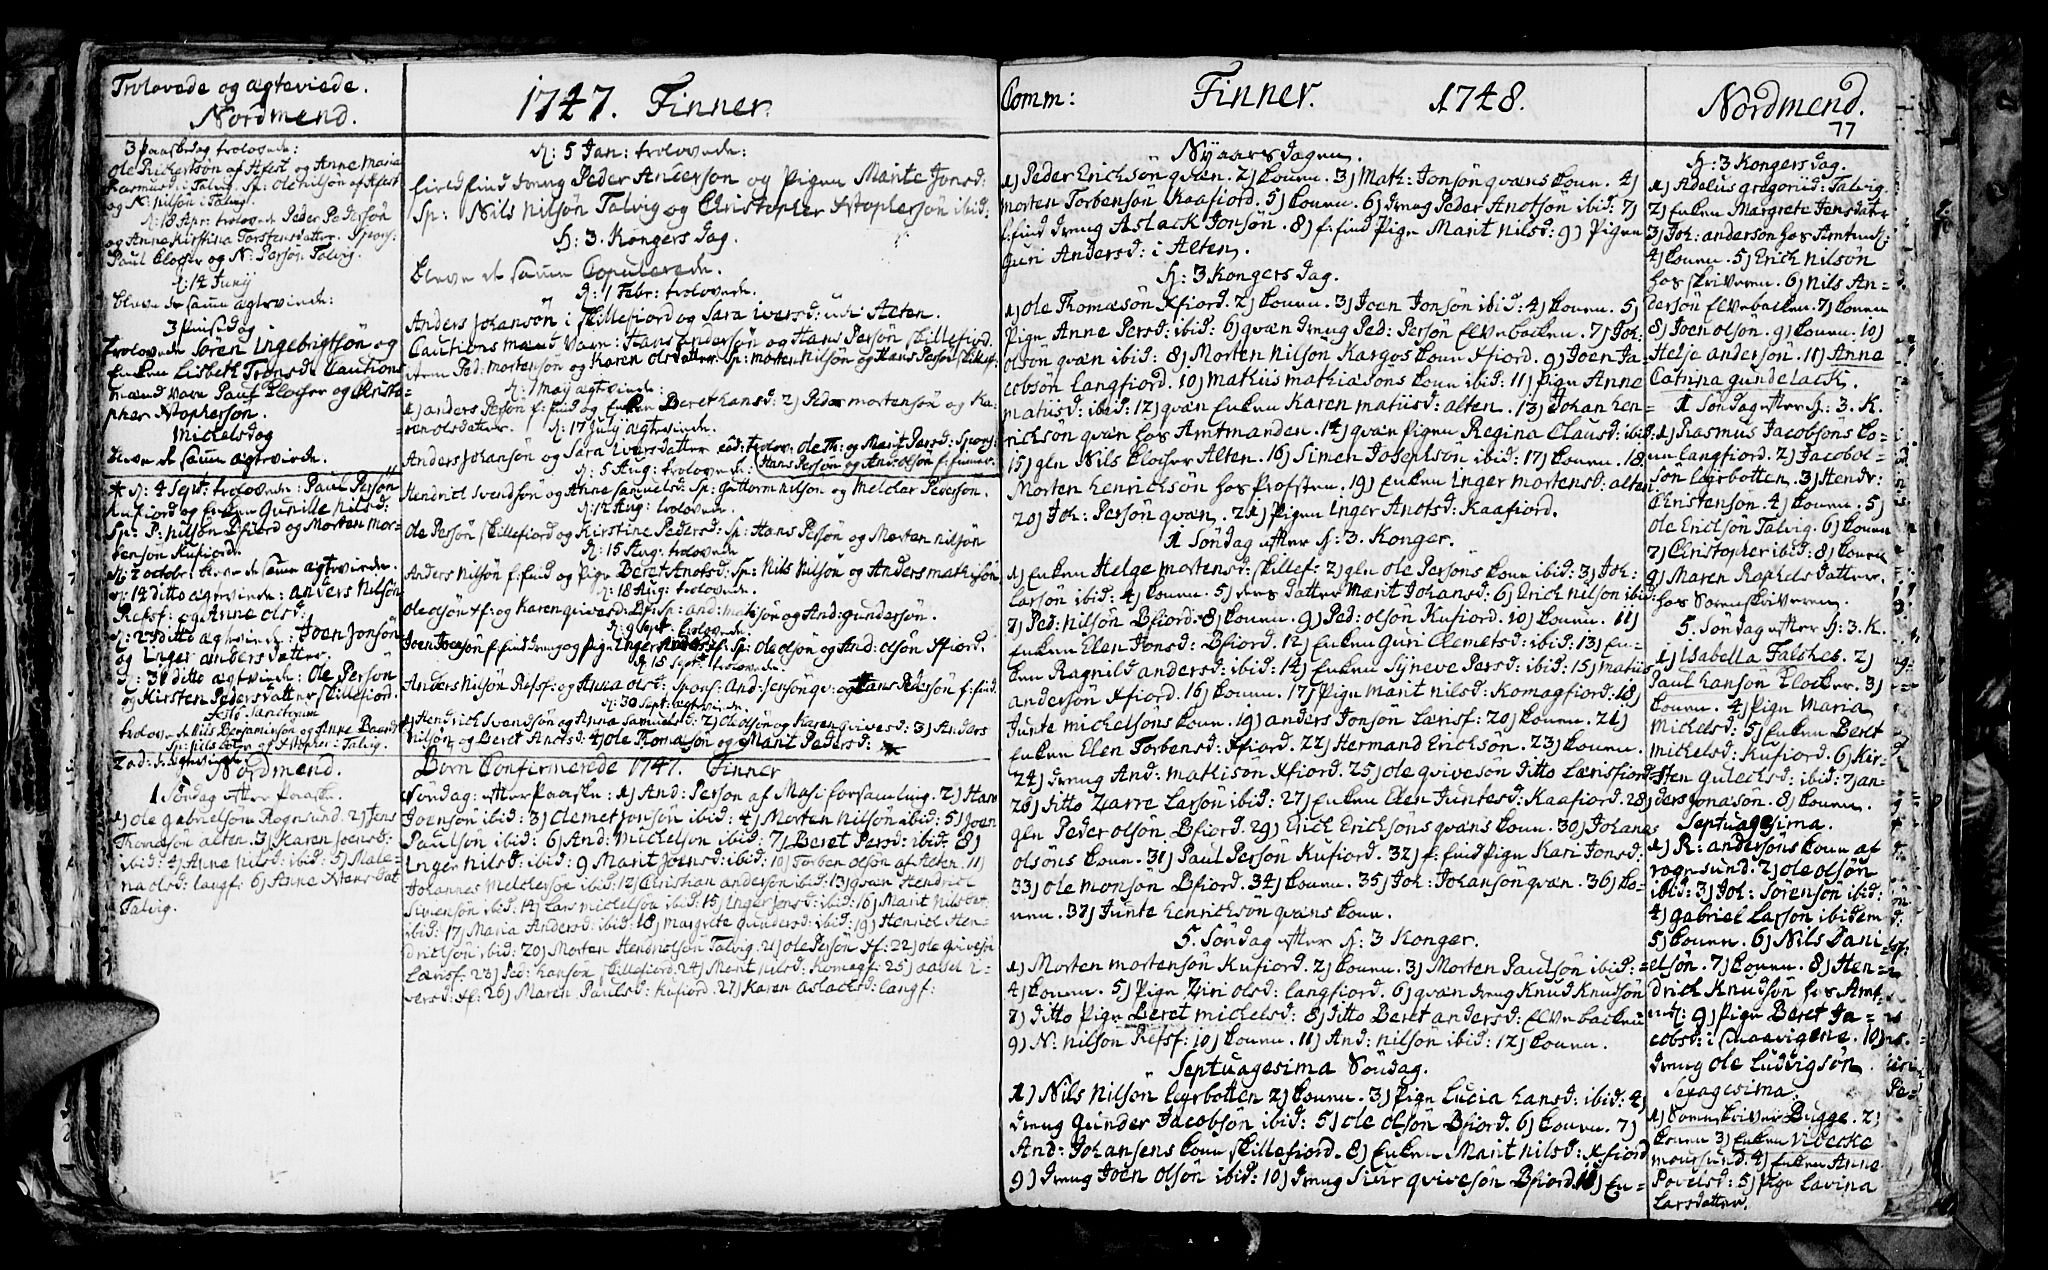 Trolovede og ægteviede.
Nordmend.
3 Paaskedag trolovede:
Ole Richertsön af Kfest og Anne Maria
Rasmusd: i Talvig. Sp: Ole Nilsön af Kfest
og N: Nilsön i Talvig.
d: 18 Apr: trolovede Peder Pedersön
og Anne Kirstina Torstensdatter. Spons:
Paul Clocher og N: Person Talvig.
d: 14 Junij
bleve de samme ægteviede:
3 Pinsedag
trolovede Sören Ingebrigtsön og
Enken Lisbeth Tronsd: Cautions
mænd vare Paul Clocher og Christo=
pher Xstopherson.
Michelsdag
bleve de samme ægteviede.
d: 4 Sept: trolovede: Paul Persön
Kufiord og Enken Gunille Nilsd:
Sp: P: Nilsön Bfiord og Morten Mor=
tensön Kufiord.
d: 2 octobr: bleve de samme ægteviede.
d: 14 ditto ægteviede: Anders Nilsön
Refsf: og Anne Olsd:
d: 23 ditto ægteviede: Joen Jonsön
og Inger andersdatter.
d: 30 ditto ægteviede: Ole Persön
og Kirsten Pedersdatter Skillefiord.
Festo Sanctorum
trolovede Nils Benjaminsön og Anne
i Talvig.
Nordmend.
1 Söndag efter Paaske.
1) Ole Gabrielsön Rognsund. 2) Jens
Thomæsön alten. 3) Karen Joensd:
ibid: 4) Anne Nilsd: ibid: 5) Male=
na olsd: langf: 6) Anne Xtensdat
Talvig.
1747. Finner.
d: 5 Jan: trolovede:
field find dreng Peder Anderson og Pigen Marite Jonsd:
Sp: Nils Nilsön Talvig og Christopher Xstophersön ibid:
H: 3. Kongers dag.
bleve de samme Copulerede.
d: 1 Febr: trolovede.
Anders Johansön i Skillefiord og Sara Iversd: udi Alten.
Cautions mænd vare: Hans andersön og Hans Persön Skillefiord.
item Ped: mortensön og Karen olsdatter. Sp: morten Nilson og Hans Person
d: 7 Maij ægteviede:
1) anders Persön f: find og Enken Beret Hansd: 2) Peder mortensön og Ka=
ren olsdatter. d: 17 Julij ægteviede.
Anders Johansön og Sara Iversdatter eod: trolov: Ole Th: og Marit Persd: Spons:
d: 5 Aug: trolovede: Hans Persön og And: olsön f: finner.
Hendrich Svendsön og Anne Samuelsd: Sp: Guttorm Nilson og Melcher Pederson.
d: 12 Aug: trolovede.
Ole Persön Skillefiord og Kirstine Pedersd: Sp: Hans Persön og Morten Nilsön
d: 15 Aug: trolovede
Anders Nilsön f: find og Pigen Beret Anotsd: Sp: Nils Nilsön og Anders mathisön.
d: 18 Aug: trolovede.
Ole olsön Xf: og Karen qvivesd: Bf: Sp: and: matisön og And: gundersön.
d: 9 Sept: trolovede
Sp: Ole olsön og And: olsön Xfiord.
d: 15 Sept: trolovede.
Anders Nilsön Refsf: og Anna olsd: Spons: And: Persön qv: og Hans Pedersön f: find.
d: 30 Sept: ægteviede
1) Hendrich Svendsön og Anna Samuelsd: 2) Ole olsön og Karen qvivesd: 3) Anders
Nilsön og Beret Anotsd: 4) Ole Thomasön og Marit Pedersd:
Börn Confirmerede 1747. Finner
Söndag: efter Paaske: 1) And: Person af Masi forsamling. 2) Hans
Joensön ibid: 3) Clemet Jonsön ibid: 4) Morten Nilsön ibid: 5) Joen
Paulsön ibid: 6) And: Michelsön ibid: 7) Beret Persd: ibid: 8)
Inger Nilsd: ibid: 9 Marit Joensd: ibid: 10) Torben olsön af Alten. 11)
Johannes Melchersön ibid: 12) Christian andersön ibid: 13) qvæn Hendrich
Sivensön ibid: 14 Lars michelsön ibid: 15) Inger Jonsd: ibid: 16) Marit Nilsdtr.
ibid: 17) Maria Andersd: ibid: 18) margrete Gundersd: ibid: 19) Henrich Hen=
drichsön ibid: 20) Morten Hendrichsön Talvig. 21) Ole Persön Xf: 22) Ole qvivesön
Lærisf: 23) Ped: Hansön Skillefiord. 24) Marit Nilsd: Komagf: 25) aasel I=
versd: Xf: 26) Maren Paulsd: Kufiord. 27) Karen aslachsd: langf:
Comm: Finner. 1748.
Nyaarsdagen.
1) Peder Erichsön qvæn. 2) konen. 3) Math: Jonsön qvæns kone. 4)
morten Torbensön Kaafiord. 5) konen. 6) dreng Peder Anotsön ibid: 7)
f: find dreng Aslack Jonsön. 8) f: find Pigen Marit Nilsd: 9) Pigen
Guri Andersd: i Alten.
H: 3 Kongers dag.
1) Ole Thomæsön Xfiord. 2) konen. 3) Joen Jonsön ibid: 4) konen. 5)
Pigen Anne Persd: ibid: 6) qvæn dreng Ped: Persön Elvebacken. 7) Joh:
olson qvæn ibid: 8) Morten Nilsön Kargos kone Xfiord. 9) Joen Ja=
cobsön Langfiord. 10) Mathis mathiæsöns kone ibid: 11) Pigen Anne
matiisd: ibid: 12) qvæn Enken Karen matiisd: alten. 13) Johan Hen=
richsön qvæn hos Amtmanden. 14) qvæn Pigen Regina Clausd: ibid:
15) gln Nils Clocher Alten. 16) Simen Josephsön ibid: 17) konen. 18
Morten Henrichsön hos Profsten. 19) Enken Inger mortensd: alten
20) Joh: Persön qvæn. 21) Pigen Inger Anotsd: Kaafiord.
1 Söndag efter H: 3. Konger.
1) Enken Helge mortensd: Skillef: 2) glen Ole Persöns kone ibid: 3) Joh:
Larsön ibid: 4) konen. 5) deres datter Marit Johansd: 6) Erich Nilson ibid:
7) Ped: Nilsön Bfiord. 8) konen. 9) Ped: olsön Kufiord. 10) konen. 11)
Enken Elen Jonsd: Bfiord. 12) Enken Guri Clemetsd: ibid: 13) En=
ken Ragnild andersd: ibid: 14) Enken Syneve Persd: ibid: 15) matiis
andersön Xfiord. 16) konen. 17) Pigen Marit Nilsd: Komagfiord. 18)
Junte michelsöns kone. 19) anders Jonsön Lærisf: 20) konen. 21)
Enken Elen Torbensd: Xfiord. 22) Hermand Erichsön. 23) konen.
24) dreng And: mathisön Xfiord. 25) Ole qvivesön ditto Lærisfiord
26) ditto Zarre Larsön ibid: 27) Enken Elen Juntesd: Kaafiord. 28)
glen Peder olsön Bfiord. 29) Erich Erichsöns qvæns kone. 30) Johanes
olsöns kone. 31) Paul Persön Kufiord. 32) f: find Pigen Kari Jonsd:
33) Ole monsön Bfiord. 34) konen. 35) Joh: Johansön qvæn. 36) ko=
nen. 37) Junte Henrichsön qvæns kone.
5. Söndag efter H: 3 Konger.
1) Morten mortensön Kufiord. 2) konen. 3) Morten Paulsön ibid:
4) konen. 5) Pigen Ziri olsd: langfiord. 6) qvæn dreng Knud Knudsön
7) ditto Pigen Beret michelsd: 8) ditto Beret andersd: Elvebacken
9) N: Nilson Refsf: 10) konen. 11) And: Nilsön ibid: 12) konen.
Septuagesima Söndag.
1) Nils Nilsön Lerbotten 2) konen. 3) Pigen Lucia Hansd: ibid: 4)
dreng Gunder Jacobsön ibid: 5) Ole olsön Bfiord. 6) konen. 7)
And: Johansens kone Skillefiord. 8) Enken Marit Nilsd: Xfiord
9) dreng Joen olsön ibid: 10) dreng Siur qvivesön Bfiord. 11) En=
Nordmend.
77
H: 3 Kongers dag.
1) Adelus gregorid: Talvig.
2) Enken Margrete Jensdater
3) Joh: anderson hos Amtmd:
4) konen. 5) Erich Nilsön
hos Skriveren. 6) Nils An=
dersön Elvebacken. 7) konen
8) Joen olson. 9) konen. 10)
Helje andersön. 11) Anna
Catrina gundelach.
1 Söndag efter H: 3. K.
1) Rasmus Jacobsöns ko=
nen langfiord. 2) Jacob ol=
sön Lerbotten. 3) Hendr:
Christensön. 4) konen. 5)
Ole Erichsön Talvig. 6) konen
7) Christopher ibid: 8) konen
9) Maren Raphelsdatter.
hos Sorenskriveren.
5. Söndag efter H: 3. K.
1) Isabella Falches. 2)
Paul Hanson Klocker. 3)
konen. 4) Pigen Maria
Michelsd: 5) Enken Beret
michelsd: Kufiord. 6) Kir=
sten Gulichsd: ibid: 7) an=
ders Jonasön. 8) konen.
Septuagesima.
1) R: andersöns kone af
rognsund. 2) Ole olsön
ibid: 3) Joh: Sörensön ibid:
4) gabriel Larsön ibidem
5) konen. 6) Nils Dani=
elsön. 7) konen. 8) Hen=
drich Knudsön hos Amt
md: 9) Pigen Beret Ja=
cobsd: i Smaavigene. 10)
dreng Ole Ludvigsön.
Sexagesima.
1) Sorenskriver Bugge. 2)
konen 3) Enken Vivecke
moursund. 4) Enken Anne
Povelsd: 5) Pigen Lavina
Larsdatter.